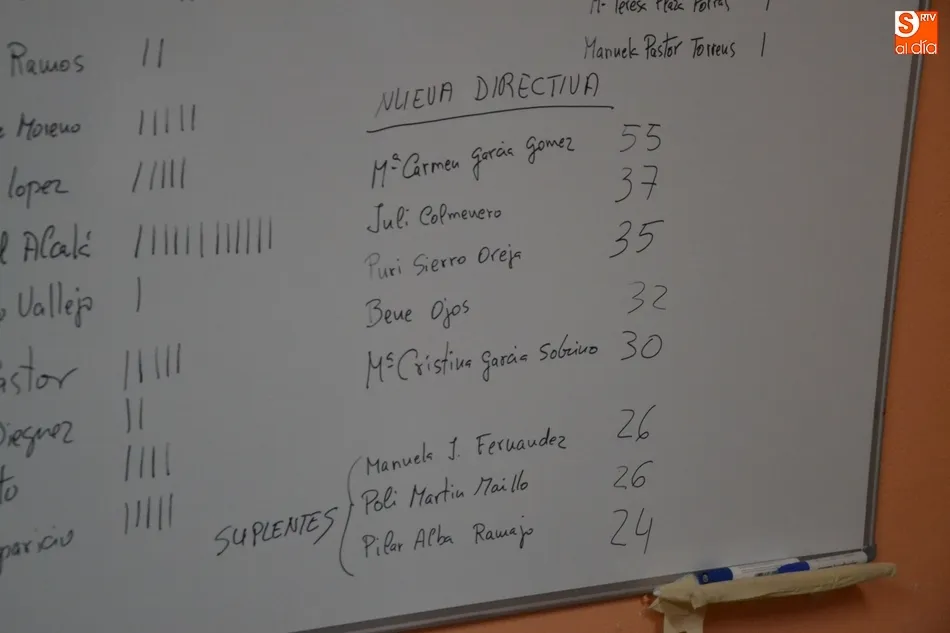 Ramos ||
Moreno |||||
lopez |||||
Alcalá ||||||||||||
Vallejo |
Pastor |||||
Dieguez ||
||||
|||||
Mª Teresa Plaza Porras |
Manuela Pastor Torreus |
NUEVA DIRECTIVA
Mª Carmen Garcia Gomez 55
Juli Colmenero 37
Puri Sierro Oreja 35
Bene Ojos 32
Mª Cristina Garcia Sobrino 30
SUPLENTES
Manuela J. Fernandez 26
Poli Martin Maillo 26
Pilar Alba Ramajo 24
S RTV
al día